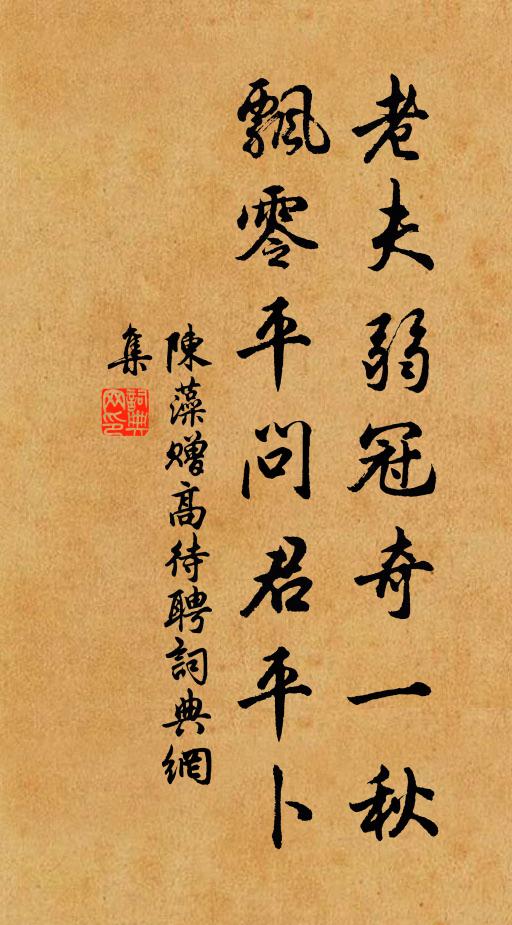 老夫弱冠奇一秋
飄零平問君平卜
陳藻赠高待聘詞典網
集
詞典
网印